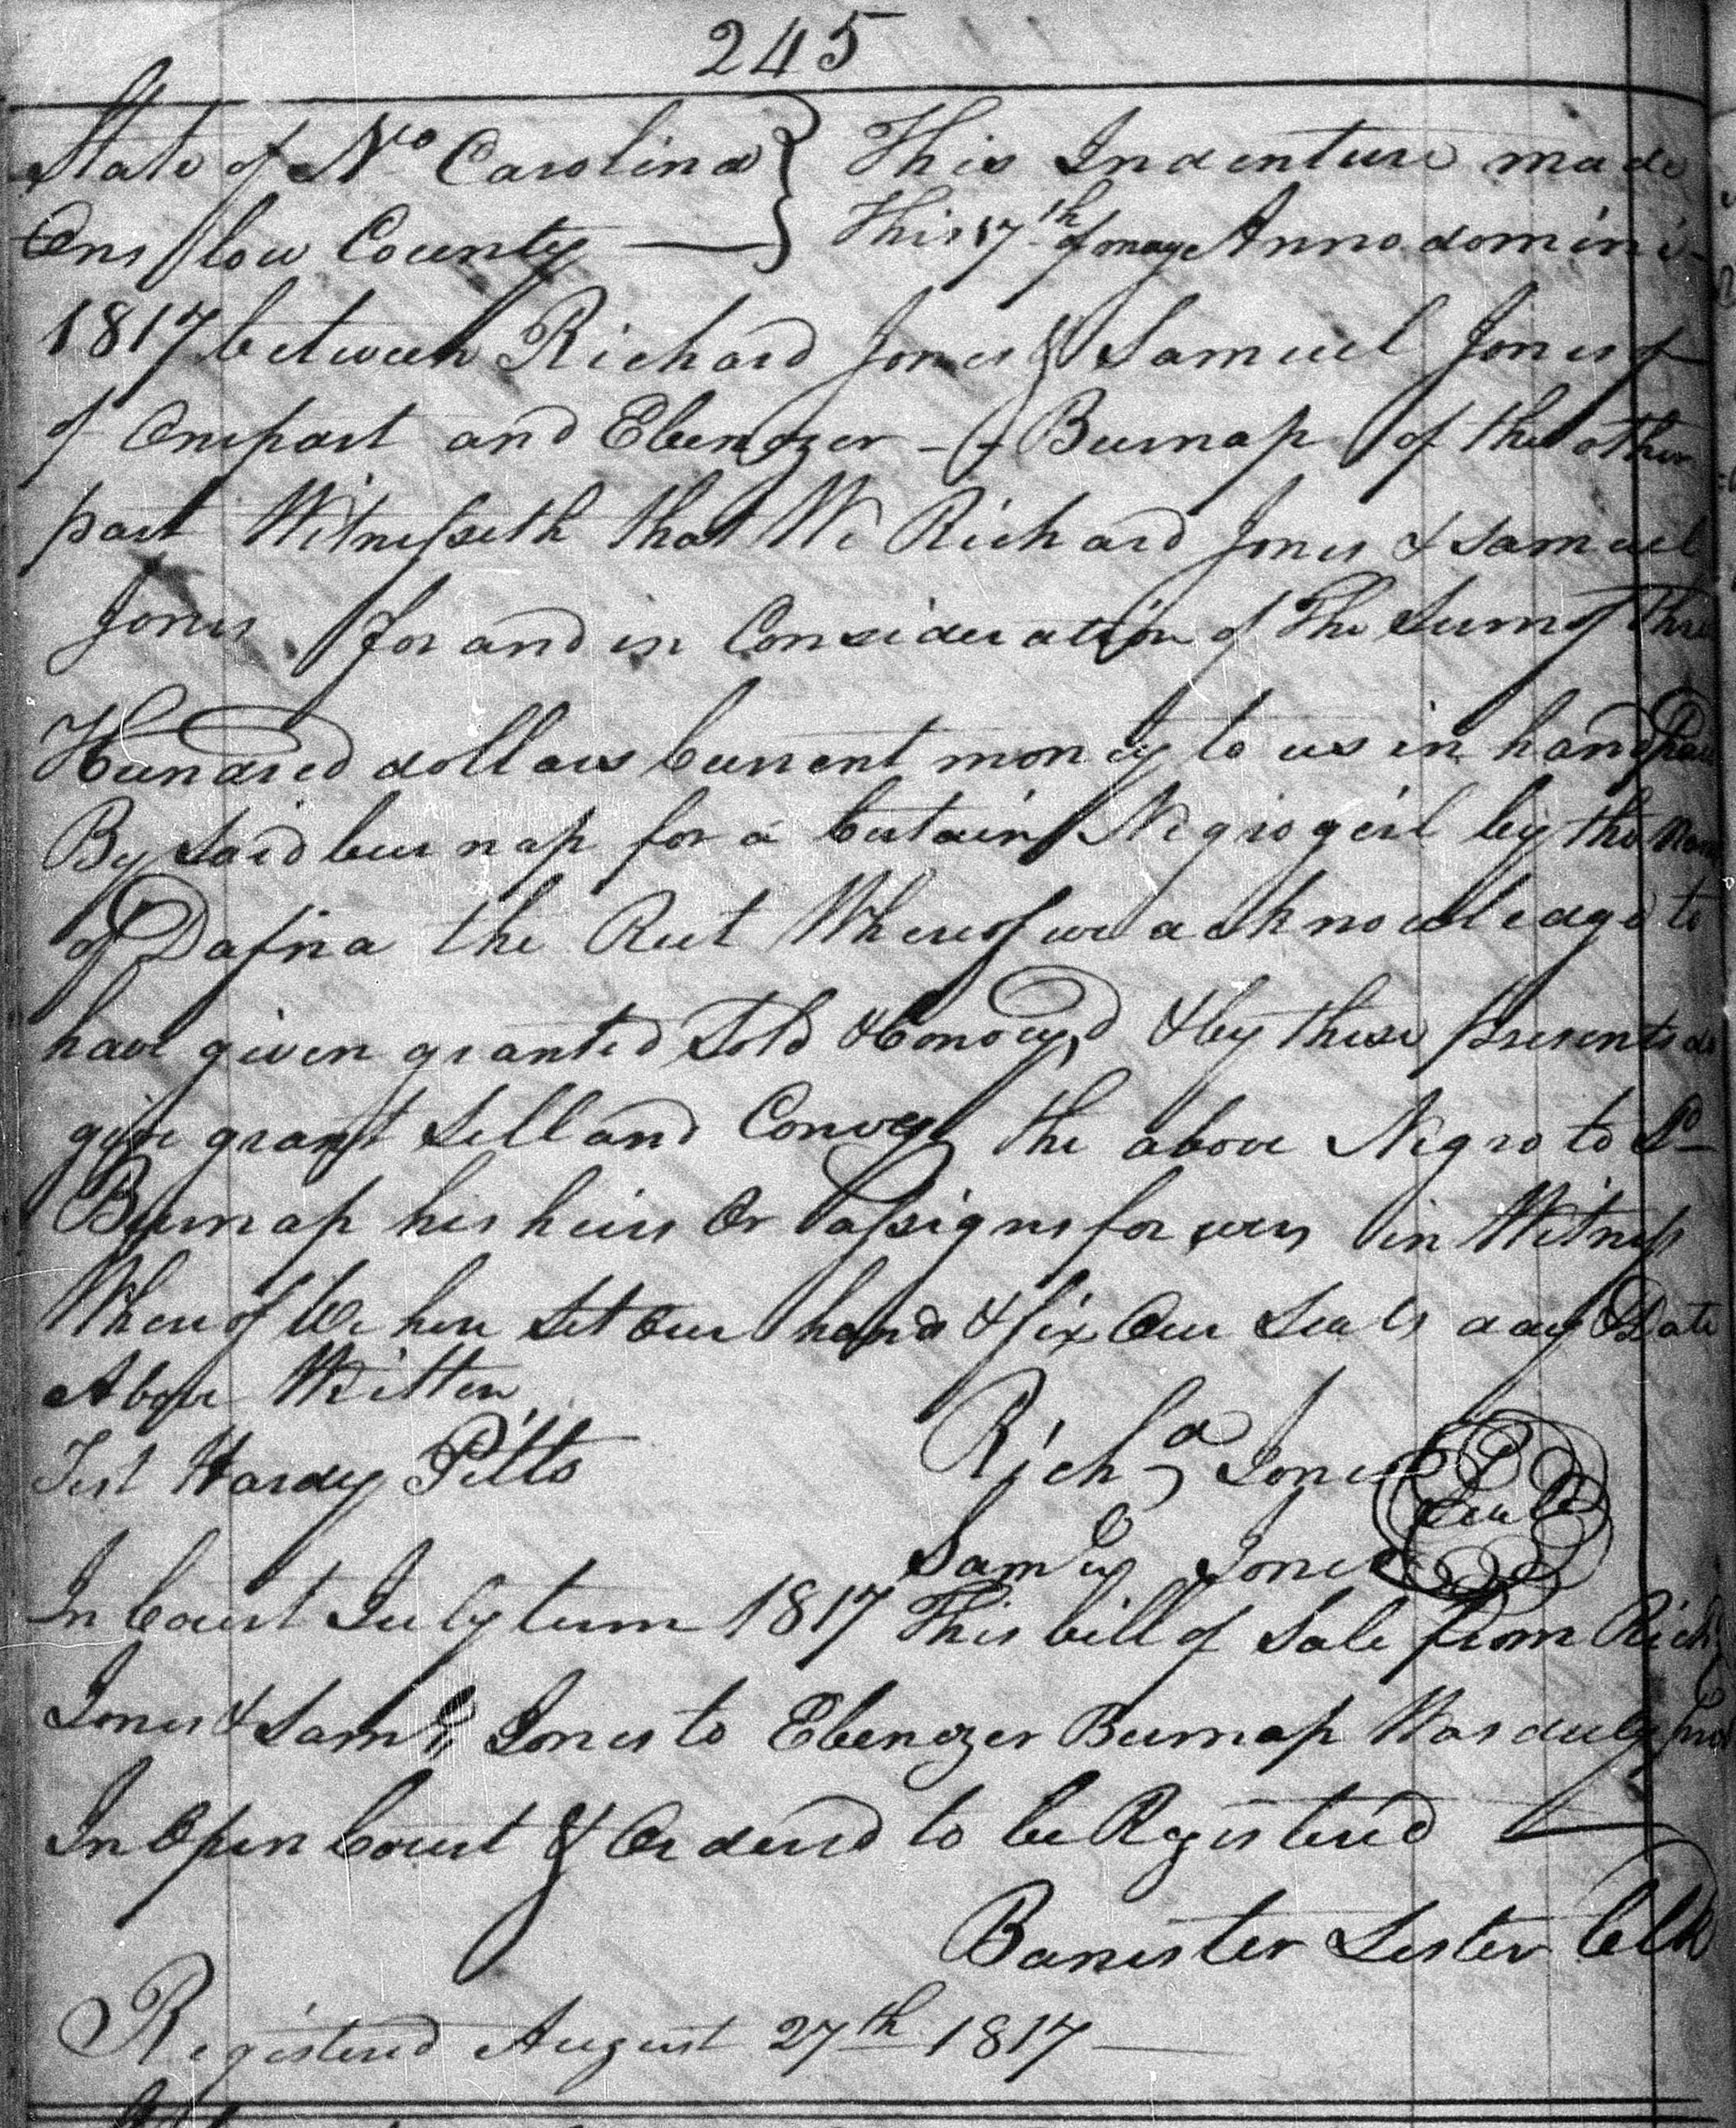 245
State of No Carolina } This Indenture made
Onslow County } This 17th of may Anno domini
1817 between Richard Jones & Samuel Jones
of Onepart and Ebenezer Burnap of the other
part Witnesseth that We Richard Jones & Samuel
Jones for and in Consideration of The Sum of Three
Hundred dollars Current money to us in hand paid
By Said burnap for a Certain Negro girl by the Name
of Dafna the Rect Whereof we acknowledge to
have given granted Sold & Convey,d & by these presents do
give grant Sell and Convey the above Negro to Sd
Burnap his heirs Or assigns for ever in Witness
Whereof We here Set Our hand & fix Our Seals day & Date
Above Written
Test Hardy Pitts Richd Jones Seal
Saml Jones
In Court July term 1817 This bill of Sale from Richd
Jones & Saml Jones to Ebenezer Burnap Was duly
In Open Court & Ordered to be Registered
Banister Lester Clk
Registered August 27th 1817